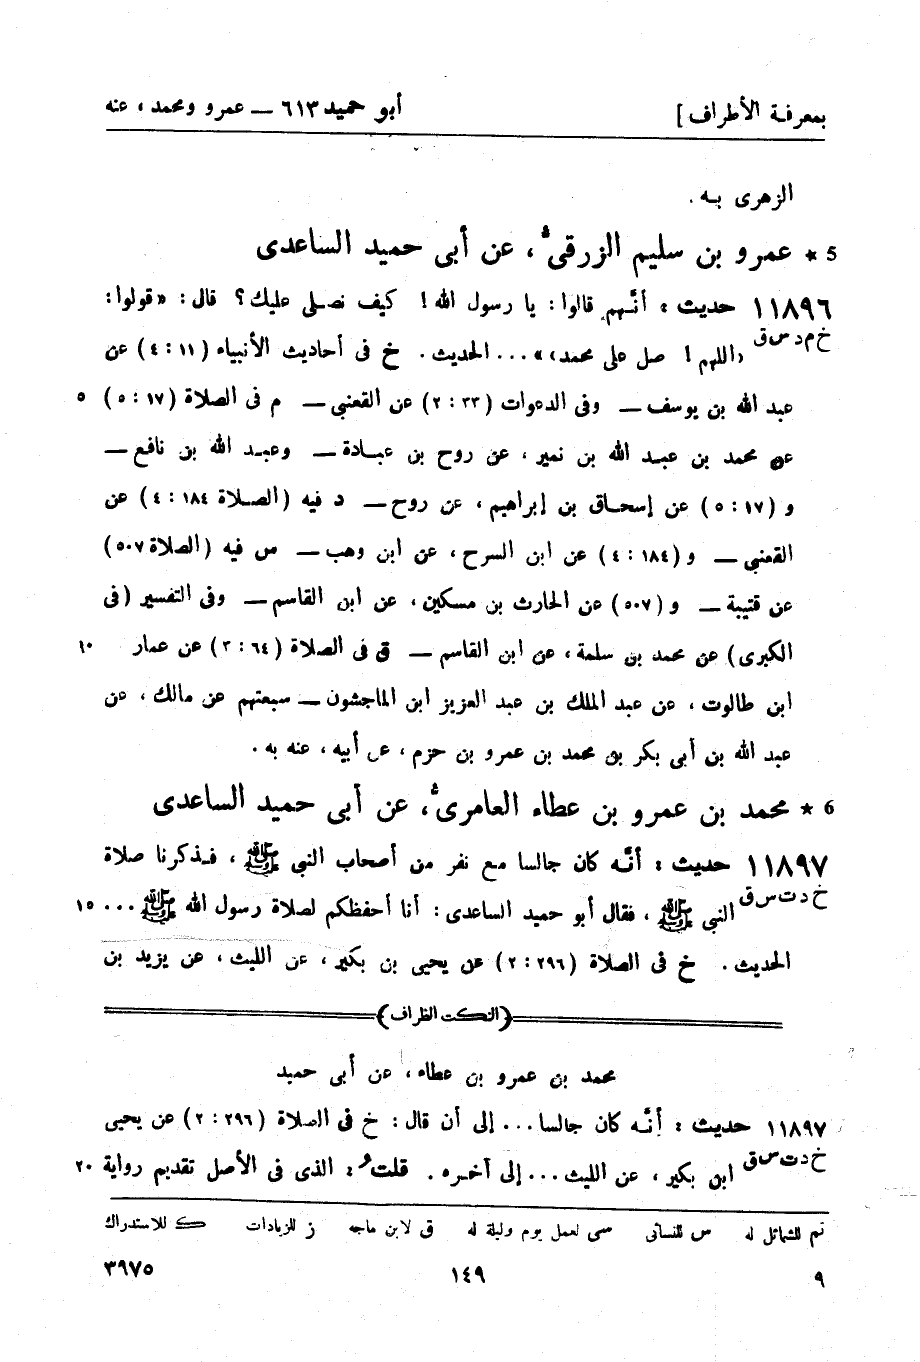 بمعرفة الأطراف ] أبو حميد ٦١٣ ــ عمرو ومحمد ، عنه
الزهرى به .
5 * عمرو بن سليم الزرقى ، عن أبى حميد الساعدى
١١٨٩٦ حديث : أنّهم قالوا : يا رسول الله ! كيف نصلى عليك ؟ قال : «قولوا :
خ م د س ق «اللهم ! صل على محمد»» ... الحديث . خ فى أحاديث الأنبياء (١١ : ٤) عن
عبد الله بن يوسف ــ وفى الدعوات (٣٣ : ٢) عن القعنبى ــ م فى الصلاة (١٧ : ٥) ٥
عن محمد بن عبد الله بن نمير ، عن روح بن عبادة ــ وعبد الله بن نافع ــ
و (١٧ : ٥) عن إسحاق بن إبراهيم ، عن روح ــ د فيه (الصلاة ١٨٤ : ٤) عن
القعنبى ــ و (١٨٤ : ٤) عن ابن السرح ، عن ابن وهب ــ س فيه (الصلاة ٥٠٧)
عن قتيبة ــ و (٥٠٧) عن الحارث بن مسكين ، عن ابن القاسم ــ وفى التفسير (فى
الكبرى) عن محمد بن سلمة ، عن ابن القاسم ــ ق فى الصلاة (٦٤ : ٣) عن عمار ١٠
ابن طالوت ، عن عبد الملك بن عبد العزيز ابن الماجشون ــ سبعتهم عن مالك ، عن
عبد الله بن أبى بكر بن محمد بن عمرو بن حزم ، عن أبيه ، عنه به .
6 * محمد بن عمرو بن عطاء العامرى ، عن أبى حميد الساعدى
١١٨٩٧ حديث : أنّه كان جالسا مع نفر من أصحاب النبى ﷺ ، فذكرنا صلاة
خ د ت س ق النبى ﷺ ، فقال أبو حميد الساعدى : أنا أحفظكم لصلاة رسول الله ﷺ ... ١٥
الحديث . خ فى الصلاة (٢٩٦ : ٢) عن يحيى بن بكير ، عن الليث ، عن يزيد بن
(النكت الظراف)
محمد بن عمرو بن عطاء ، عن أبى حميد
١١٨٩٧ حديث : أنّه كان جالسا ... إلى أن قال : خ فى الصلاة (٢٩٦ : ٢) عن يحيى
خ د ت س ق ابن بكير ، عن الليث ... إلى آخره . قلتُ : الذى فى الأصل تقديم رواية ٢٠
تم للشمائل له س للنسائى سى لعمل يوم وليلة له ق لابن ماجه ز للزيادات ك للاستدراك
٩ ١٤٩ ٣٩٧٥